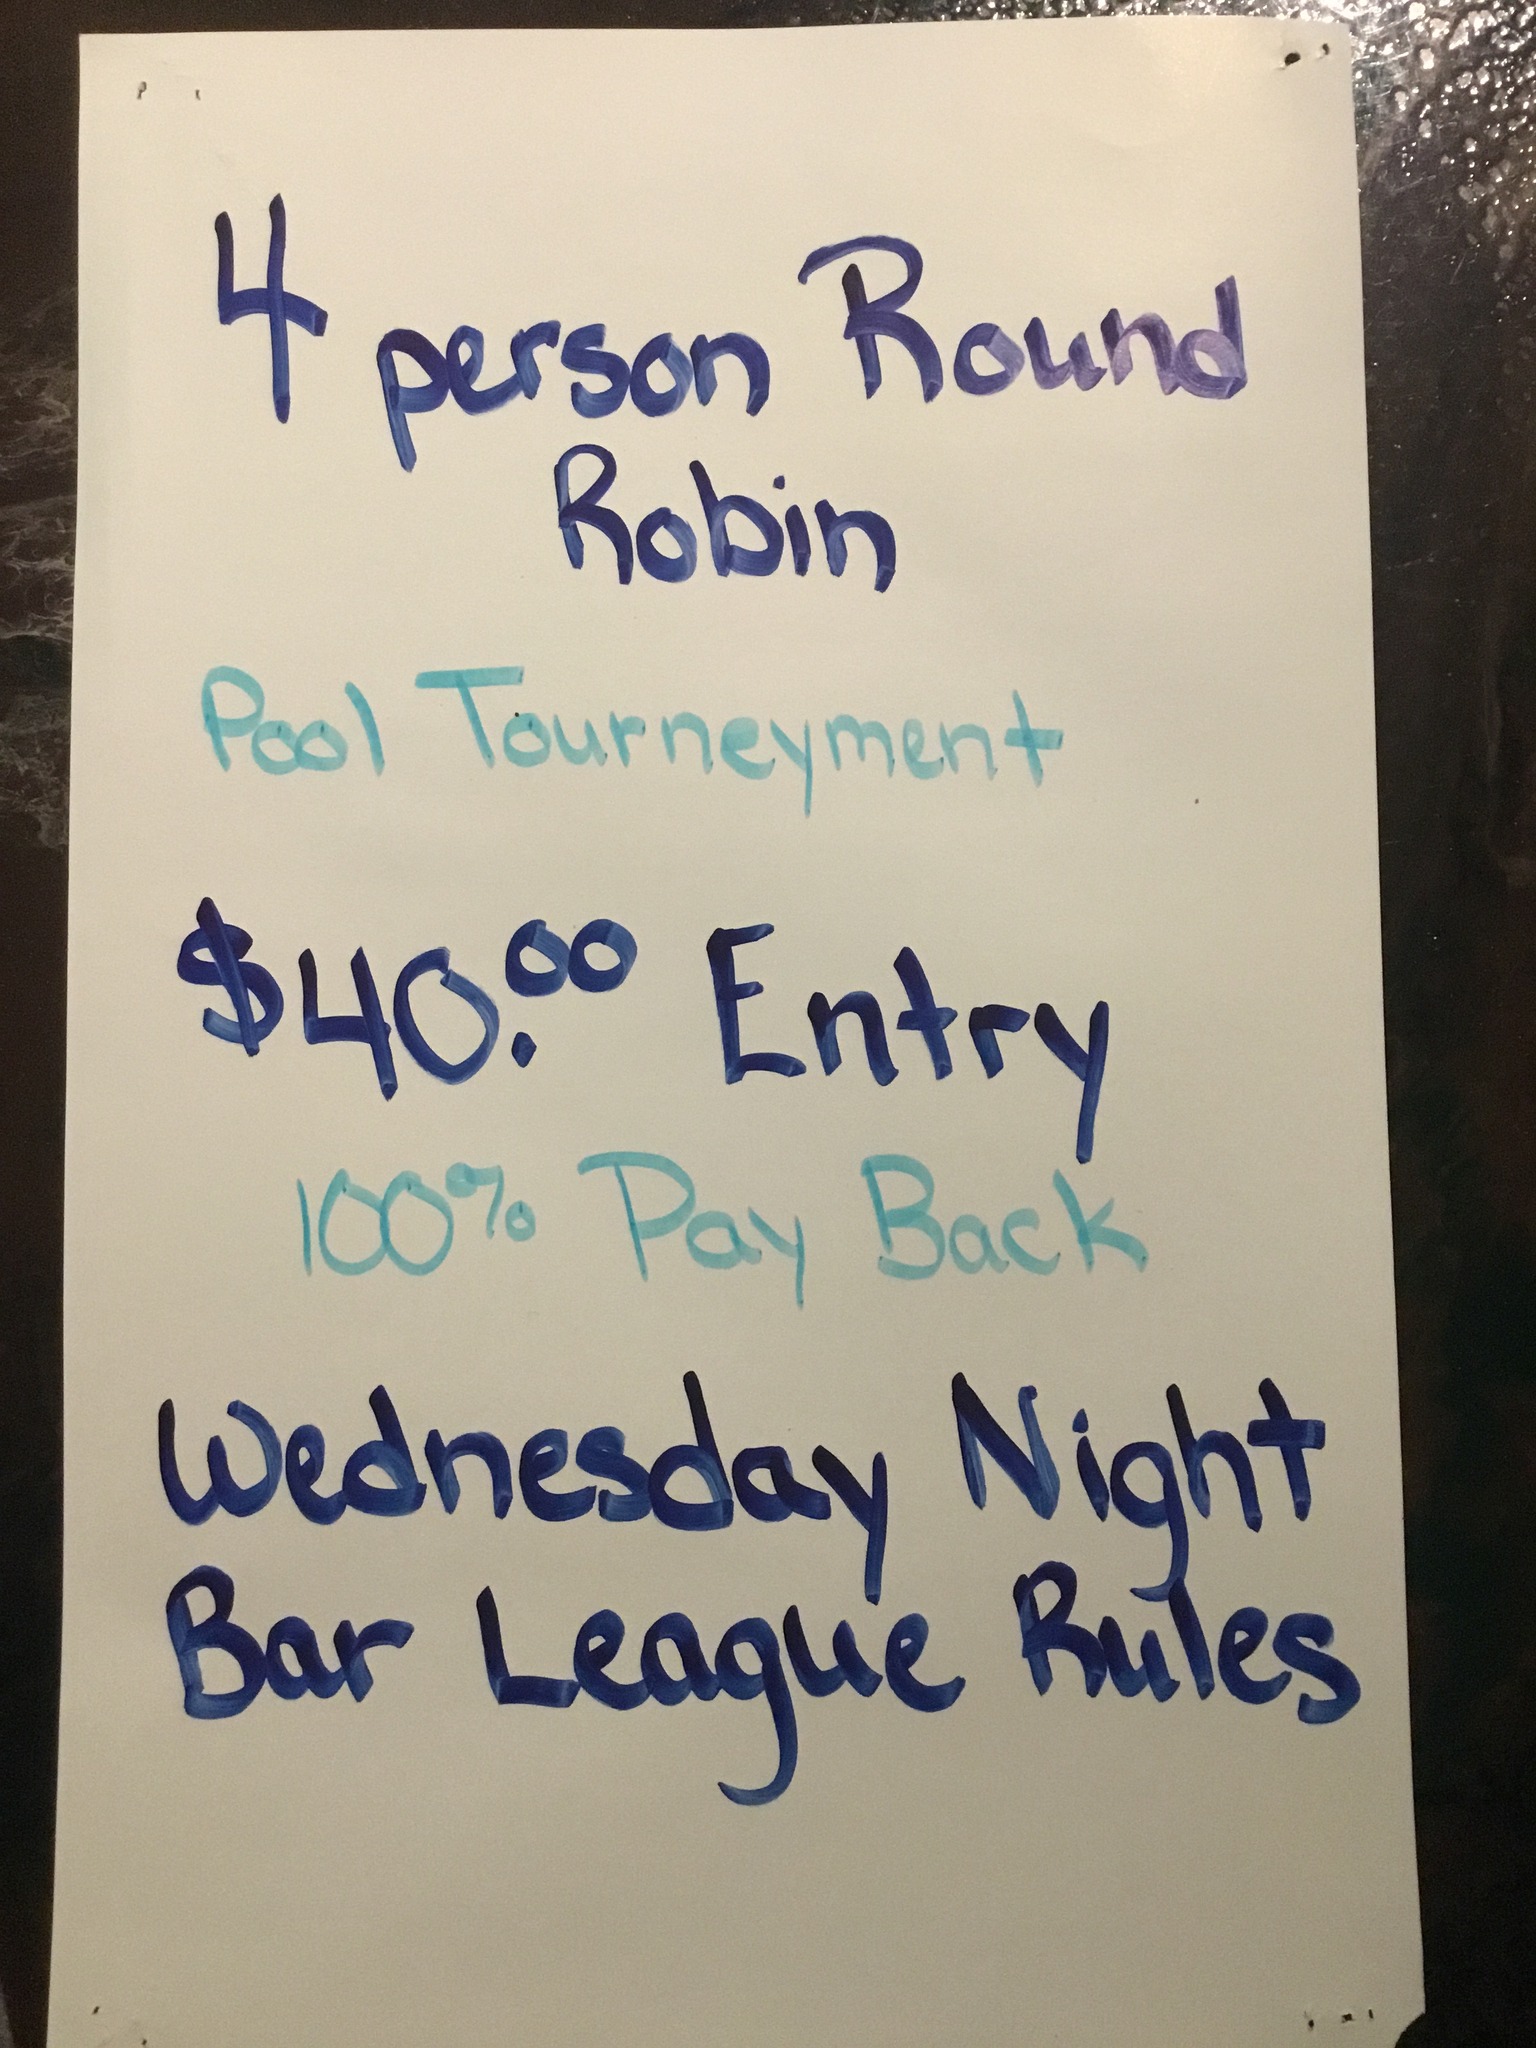 4 person Round
Robin
Pool Tourneyment
$40.00 Entry
100% Pay Back
Wednesday Night
Bar League Rules